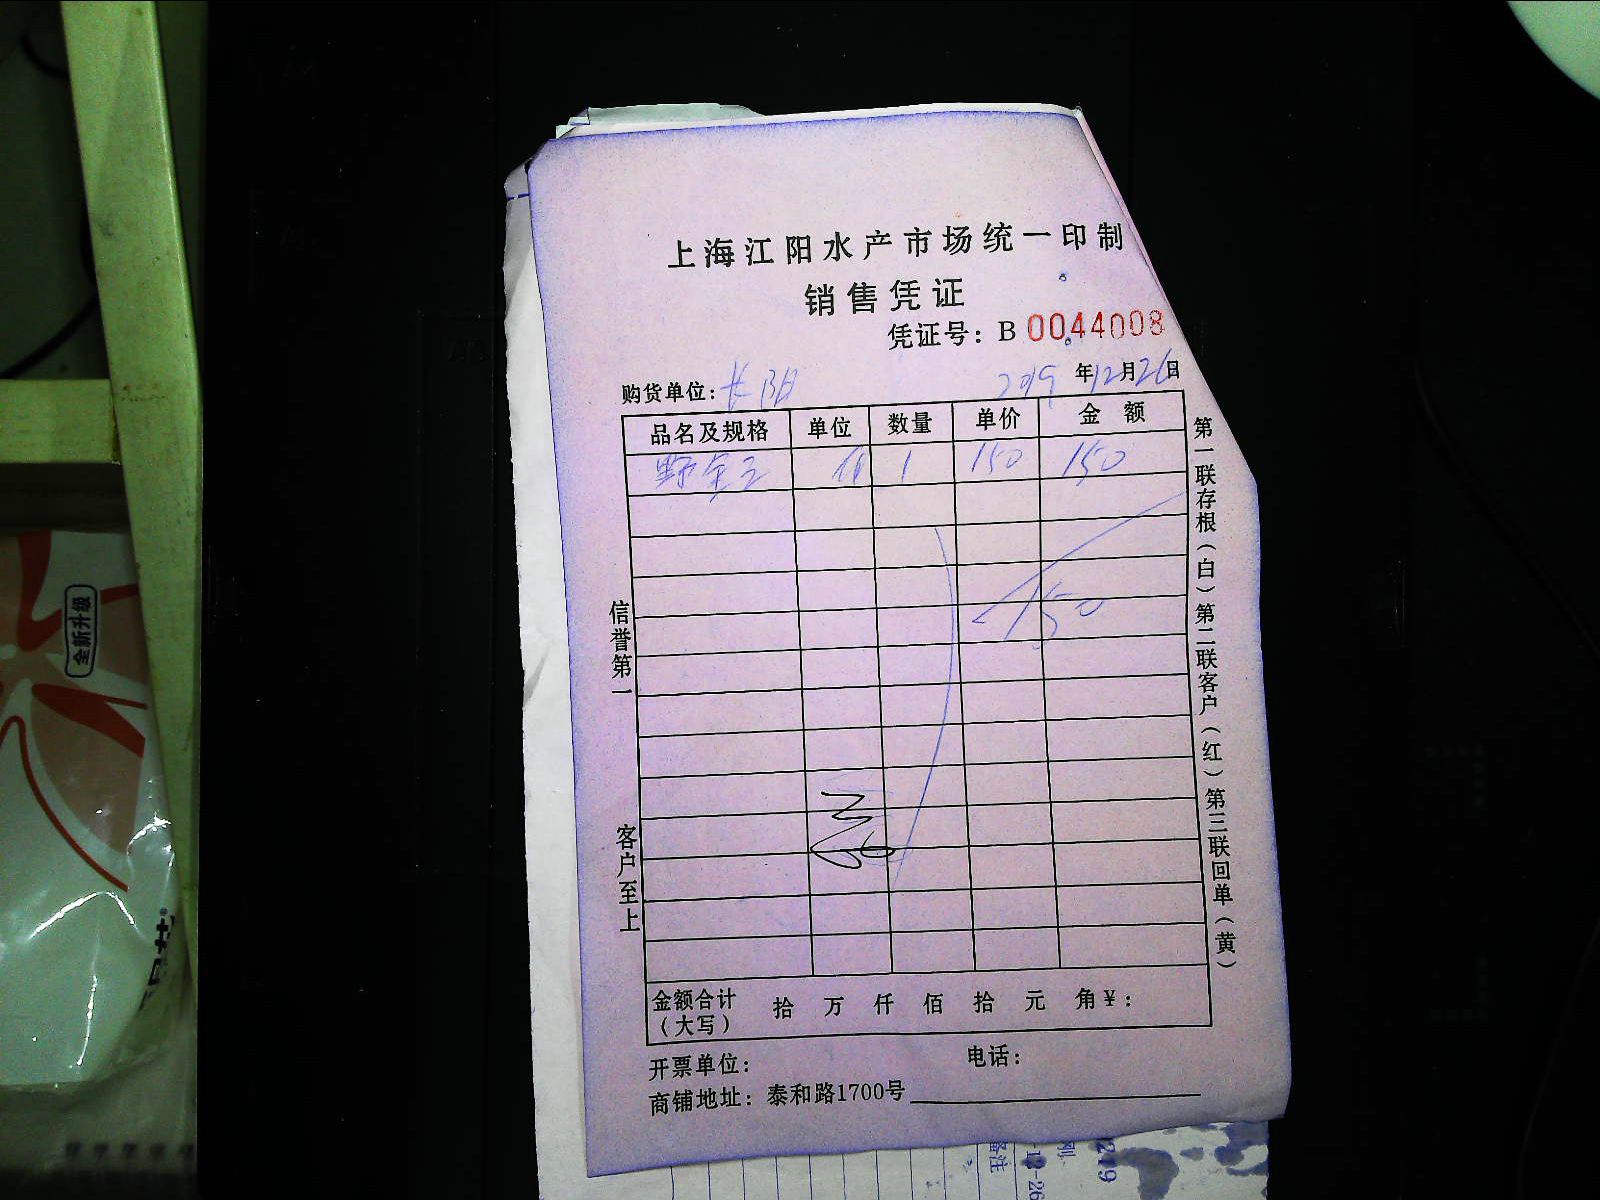 上海江阳水产市场统一印制
销售凭证
凭证号：B 0044008
购货单位：长阳 2019年12月26日
品名及规格 单位 数量 单价 金额
1 150 150
150
信誉第一
客户至上
第一联存根（白）第二联客户（红）第三联回单（黄）
金额合计（大写） 拾 万 仟 佰 拾 元 角 ¥：
开票单位： 电话：
商铺地址：泰和路1700号
全新升级
备注
-12-26
2219